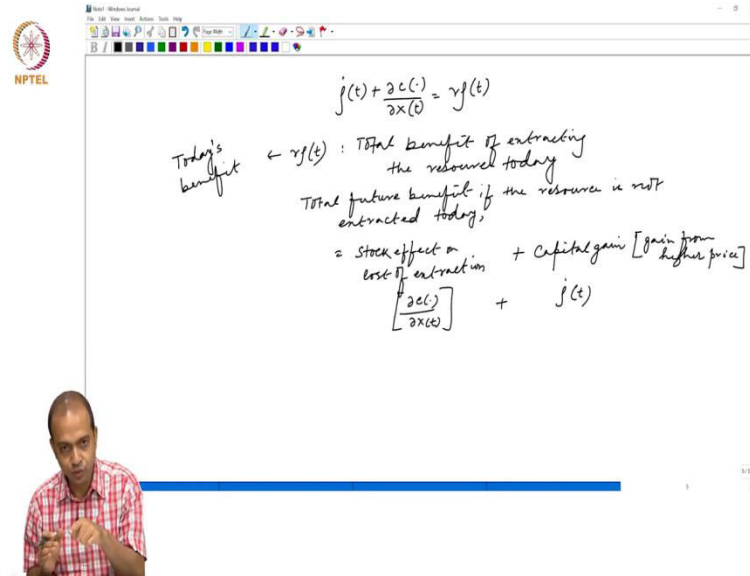 Note1 - Windows Journal
File Edit View Insert Actions Tools Help
Page Width
B I
NPTEL
ṡ(t) + ∂c(·)/∂x(t) = rs(t)
Today's benefit ← rs(t) : Total benefit of extracting
the resource today
Total future benefit if the resource is not
extracted today,
= stock effect on cost of extraction + capital gain [gain from higher price]
[∂c(·)/∂x(t)] + ṡ(t)